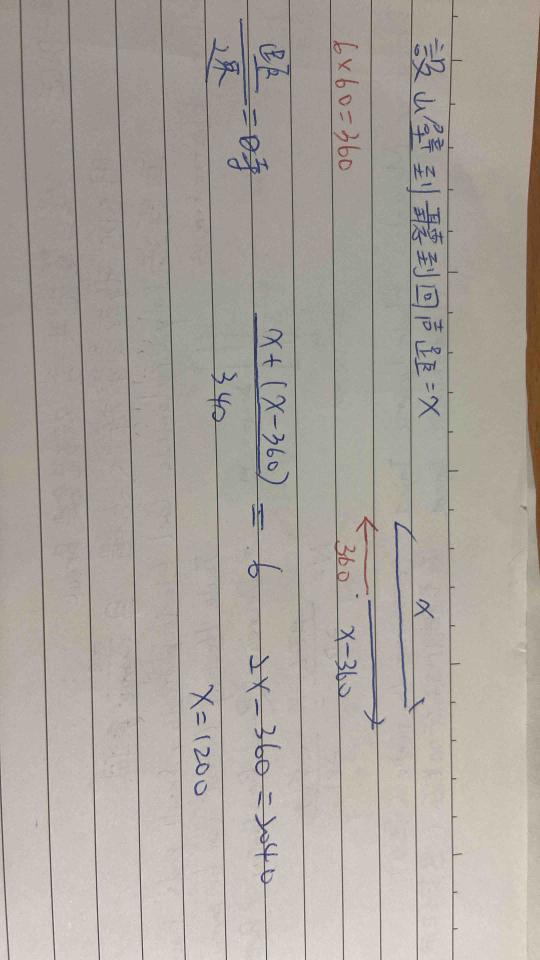 設山壁到聽到回声距=x
x
6×60=360
360
x-360
距/速=時
x+(x-360)/340=6
2x-360=2040
x=1200